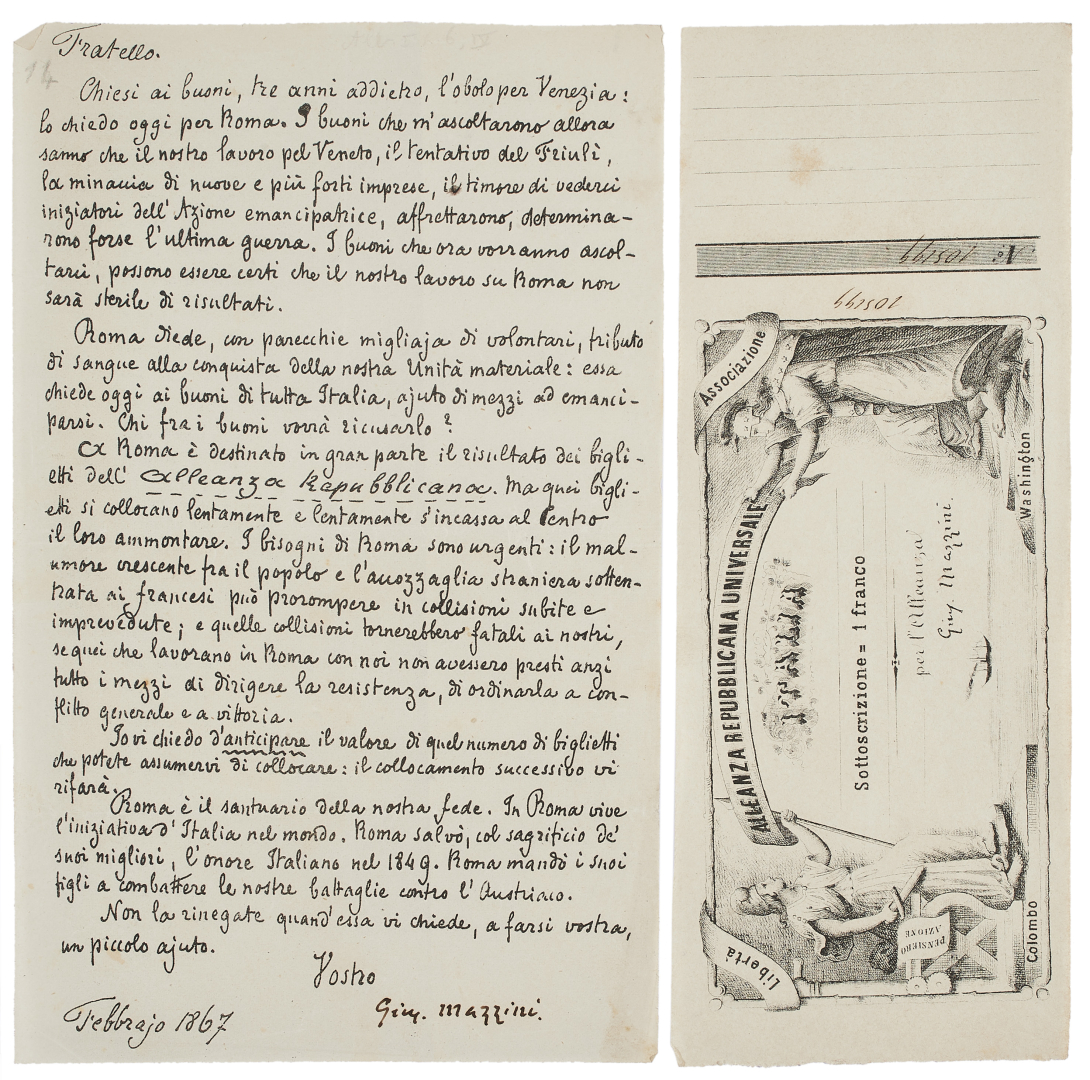 Fratello.
14
Chiesi ai buoni, tre anni addietro, l'obolo per Venezia:
lo chiedo oggi per Roma. I buoni che m'ascoltarono allora
sanno che il nostro lavoro pel Veneto, il tentativo del Friuli,
la minaccia di nuove e più forti imprese, il timore di vederci
iniziatori dell'Azione emancipatrice, affrettarono, determina-
rono forse l'ultima guerra. I buoni che ora vorranno ascol-
tarci, possono essere certi che il nostro lavoro su Roma non
sarà sterile di risultati.
Roma diede, con parecchie migliaja di volontari, tributo
di sangue alla conquista della nostra Unità materiale: essa
chiede oggi ai buoni di tutta Italia, ajuto di mezzi ad emanci-
parsi. Chi fra i buoni vorrà ricusarlo?
A Roma è destinato in gran parte il risultato dei bigli-
etti dell' Alleanza Repubblicana. Ma quei bigli-
etti si collocano lentamente e lentamente s'incassa al Centro
il loro ammontare. I bisogni di Roma sono urgenti: il mal-
umore crescente fra il popolo e l'accozzaglia straniera sotten-
trata ai francesi può prorompere in collisioni subite e
imprevedute; e quelle collisioni tornerebbero fatali ai nostri,
se quei che lavorano in Roma con noi non avessero presti anzi
tutto i mezzi di dirigere la resistenza, di ordinarla a con-
flitto generale e a vittoria.
Io vi chiedo d'anticipare il valore di quel numero di biglietti
che potete assumervi di collocare: il collocamento successivo vi
rifarà.
Roma è il santuario della nostra fede. In Roma vive
l'iniziativa d'Italia nel mondo. Roma salvò, col sagrificio de'
suoi migliori, l'onore Italiano nel 1849. Roma mandò i suoi
figli a combattere le nostre battaglie contro l'Austriaco.
Non la rinegate quand'essa vi chiede, a farsi vostra,
un piccolo ajuto.
Vostro
Gius. Mazzini.
Febbrajo 1867
N.º 105199
105199
Associazione
Washington
ALLEANZA REPUBBLICANA UNIVERSALE
ITALIA
Sottoscrizione = 1 franco
per l'Alleanza
Gius. Mazzini.
Libertà
PENSIERO
AZIONE
Colombo